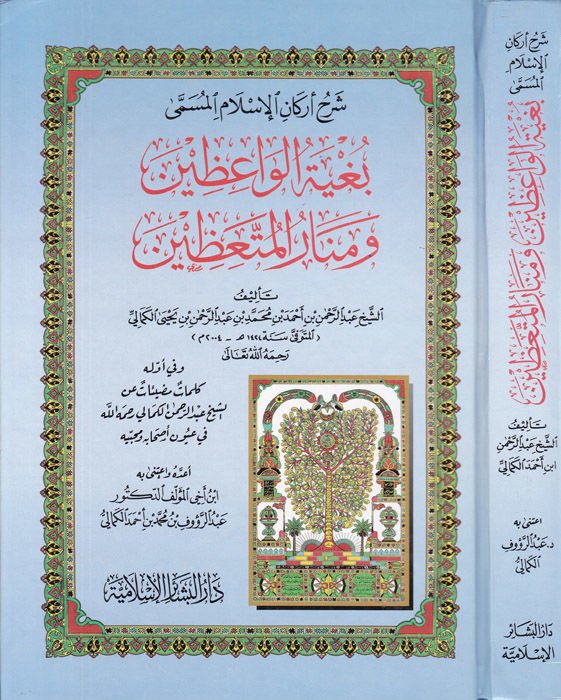 شرح أركان الإسلام المسمى
بغية الواعظين
ومنار المتعظين
تأليف
الشيخ عبد الرحمن بن أحمد بن محمد بن عبد الرحمن بن يحيى الكمالي
(المتوفى سنة ١٤٢٤ هـ - ٢٠٠٤ م)
رحمه الله تعالى
وفي أوله
كلمات مضيئات عن
لشيخ عبد الرحمن الكمالي رحمه الله
في عيون أصحابه ومحبيه
أعده واعتنى به
ابن أخي المؤلف الدكتور
عبد الرؤوف بن محمد بن أحمد الكمالي
دار البشائر الإسلامية
شرح أركان
الإسلام
المسمى
بغية الواعظين ومنار المتعظين
تأليف
الشيخ عبد الرحمن
ابن أحمد الكمالي
اعتنى به
د. عبد الرؤوف
الكمالي
دار البشائر
الإسلامية